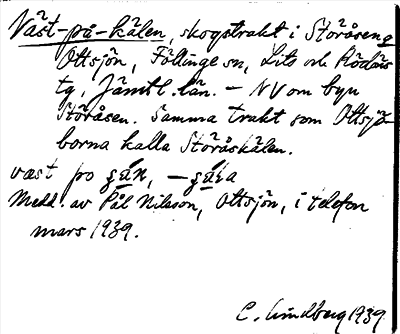 Väst-på-kälen, skogstrakt i Storåsen o
Ottsjön, Föllinge sn, Lits och Rödöns
tg, Jämtl. län. – NV om byn
Storåsen. Samma trakt som Ottsjö-
borna kalla Storåskälen.
väst po
Medd. av Pål Nilsson, Ottsjön, i telefon
mars 1939.
C. Lindberg 1939